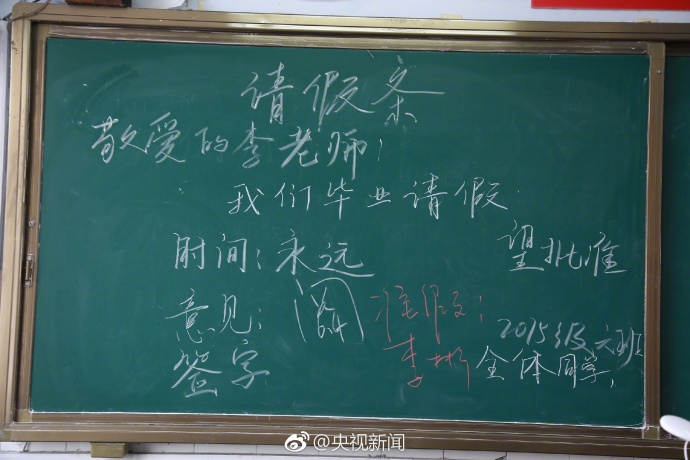 请假条
敬爱的李老师：
我们毕业请假.
时间：永远
望批准
意见：阅 准假：
签字 李彬
2015级六班
全体同学
@央视新闻